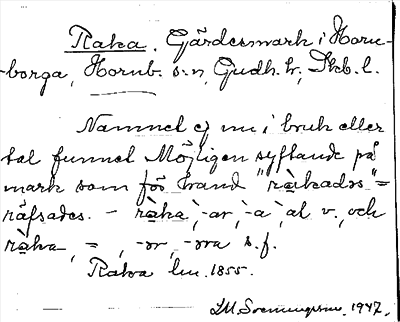 Raka. Gärdesmark i Horn-
borga, Hornb. s:n, Gudh. h., Skb. l.
Namnet ej nu i bruk eller
tal funnet Möjligen syftande på
mark som för hand "räkades" =
räfsades. – räka, -ar, -a, al v., och
räka, =, -ər, -əra s. f.
Raka lm. 1855.
1947.